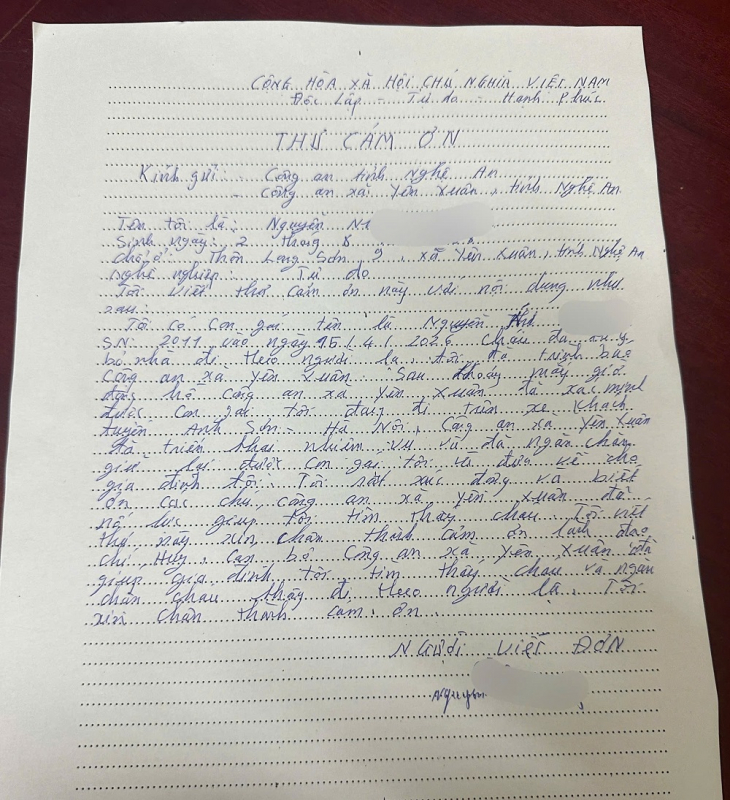 CỘNG HÒA XÃ HỘI CHỦ NGHĨA VIỆT NAM
Độc Lập - Tự do - Hạnh Phúc
THƯ CẢM ƠN
Kính gửi: - Công an tỉnh Nghệ An
- Công an xã Yên Xuân, tỉnh Nghệ An
Tên tôi là: Nguyễn
Sinh ngày: 2 tháng 8
chỗ ở: Thôn Long Sơn 9, xã Yên Xuân, tỉnh Nghệ An
Nghề nghiệp: Tự do
Tôi viết thư cảm ơn này với nội dung như
sau:
Tôi có con gái tên là Nguyễn
SN: 2011 vào ngày 15/4/2026 cháu đã
bỏ nhà đi theo người lạ, tôi đã trình báo
Công an xã Yên Xuân. Sau mấy giờ
đồng hồ công an xã Yên Xuân đã xác minh
được con gái tôi đang đi trên xe khách
tuyến Anh Sơn - Hà Nội, công an xã Yên Xuân
đã triển khai nhiệm vụ và đã ngăn chặn
giữ lại được con gái tôi và đưa về cho
gia đình tôi. Tôi rất xúc động và biết
ơn các chú, công an xã Yên Xuân đã
nỗ lực giúp tôi tìm thấy cháu. Tôi viết
thư này xin chân thành cảm ơn lãnh đạo
chỉ Huy, cán bộ công an xã Yên Xuân đã
giúp gia đình tôi tìm thấy cháu và ngăn
chặn cháu đi theo người lạ. Tôi
xin chân thành cảm ơn.
NGƯỜI VIẾT ĐƠN
Nguyễn